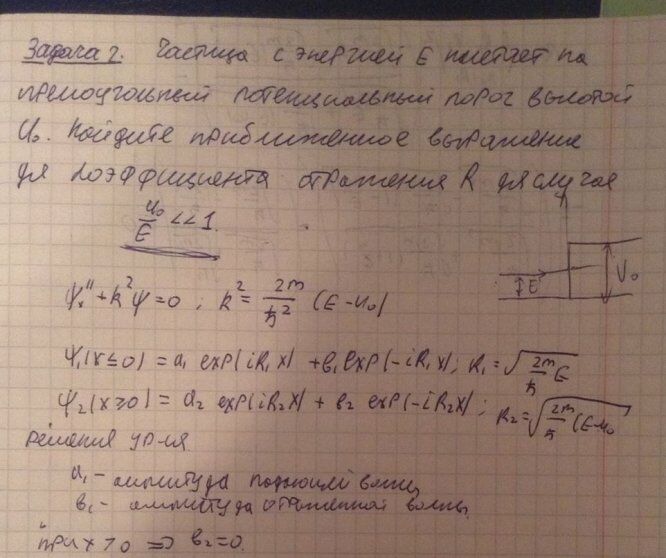 Задача 2. Частица с энергией E налетает на
прямоугольный потенциальный порог высотой
U₀. Найдите приближенное выражение
для коэффициента отражения R для случая
U₀/E << 1.
E U₀
ψₓ'' + k²ψ = 0 ; k² = 2m/ħ² (E - U₀)
ψ₁(x ≤ 0) = a₁ exp(ik₁x) + b₁ exp(-ik₁x); k₁ = √(2m/ħ E)
ψ₂(x ≥ 0) = a₂ exp(ik₂x) + b₂ exp(-ik₂x); k₂ = √(2m/ħ (E - U₀
решения ур-ия
a₁ - амплитуда падающей волны
b₁ - амплитуда отраженной волны
при x > 0 => b₂ = 0.